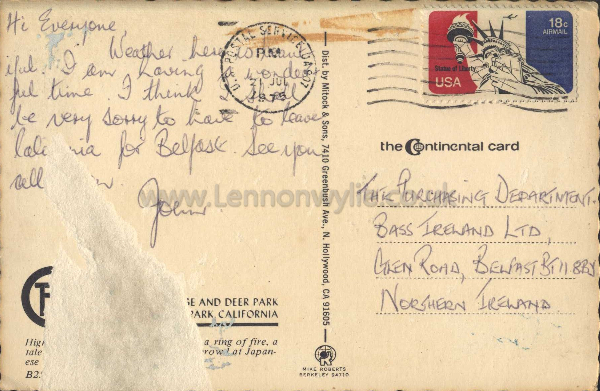 Hi Everyone
Weather here is
ful. I am having wonder
ful time I think I'll
be very sorry to have to leave
for Belfast. See you
John
SE AND DEER PARK
PARK, CALIFORNIA
High a ring of fire, a
tale row! at Japan-
ese
U.S. POSTAL SERVICE, CA
PM
21 JUL
1975
Dist. by Mitock & Sons, 7410 Greenbush Ave., N. Hollywood, CA 91605
MIKE ROBERTS
BERKELEY 94710
18c
AIRMAIL
Statue of Liberty
USA
the Continental card
www.Lennonwylie.co.uk
THE PURCHASING DEPARTMENT.
BASS IRELAND LTD,
GLEN ROAD, BELFAST BT11 8BY
NORTHERN IRELAND.